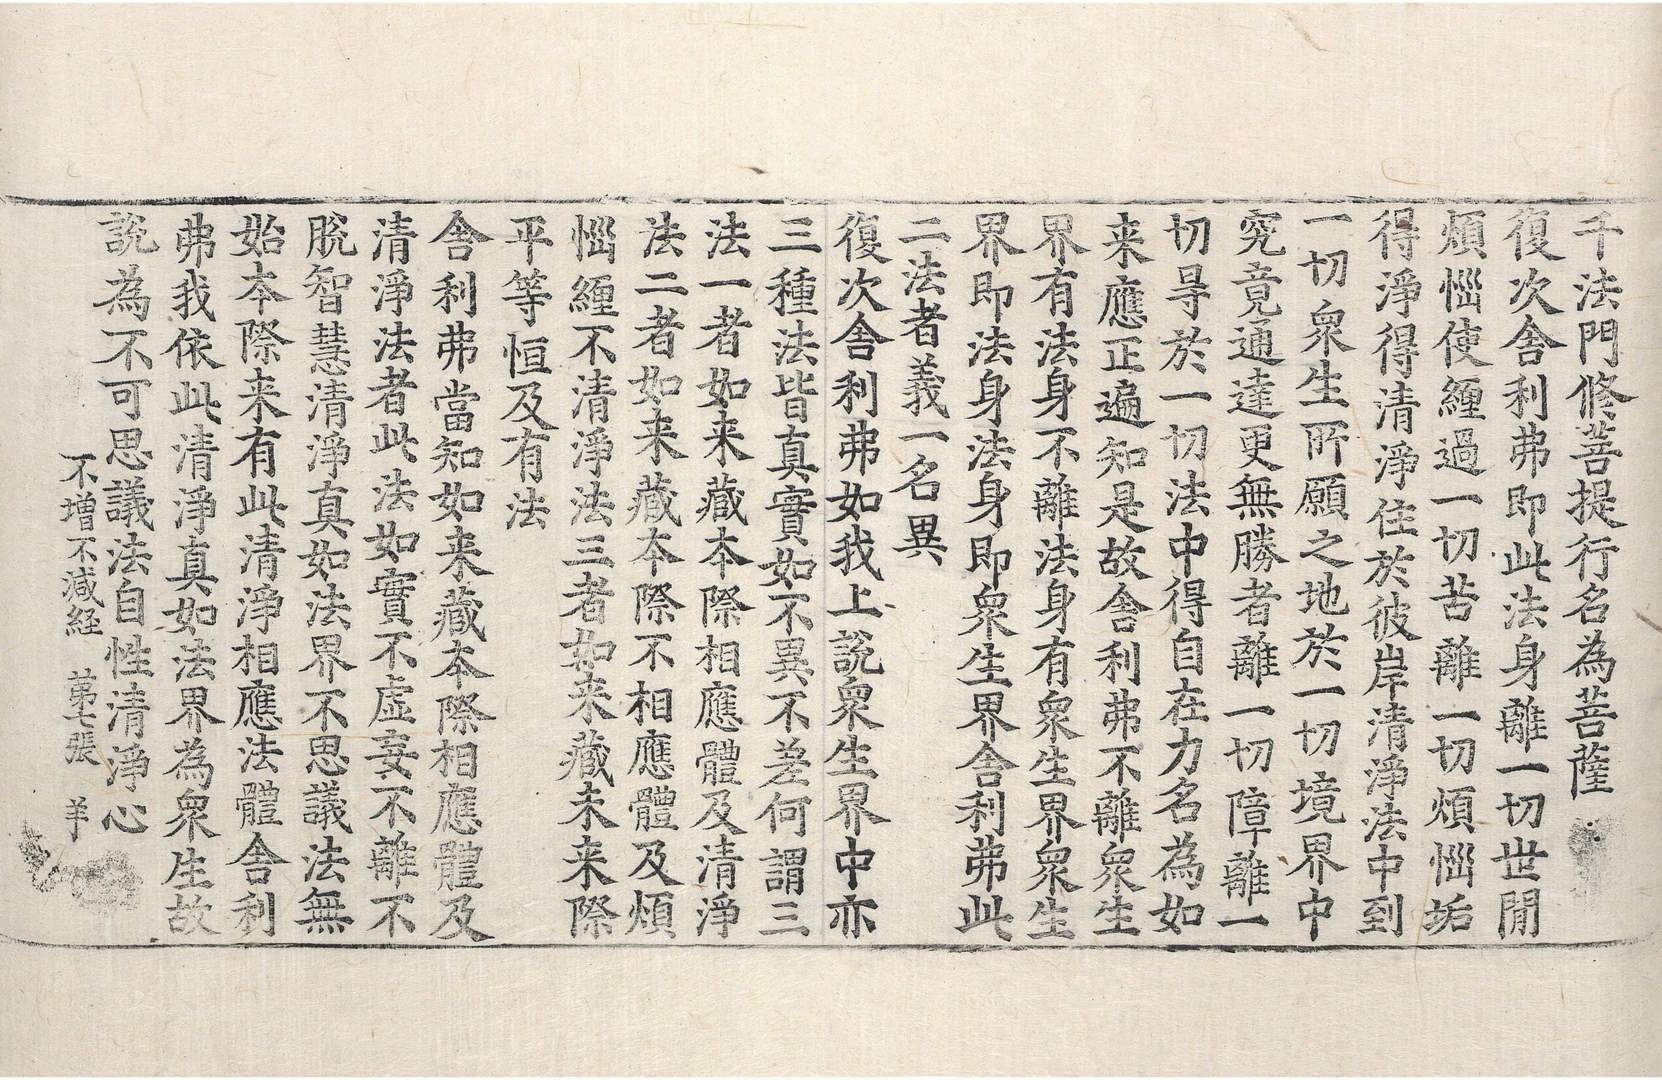 千法門修菩提行名為菩薩
復次舍利弗即此法身離一切世閒
煩惱使纏過一切苦離一切煩惱垢
得淨得清淨住於彼岸清淨法中到
一切衆生所願之地於一切境界中
究竟通達更無勝者離一切障離一
切㝵於一切法中得自在力名為如
来應正遍知是故舍利弗不離衆生
界有法身不離法身有衆生界衆生
界即法身法身即衆生界舍利弗此
二法者義一名異
復次舍利弗如我上說衆生界中亦
三種法皆真實如不異不差何謂三
法一者如来藏本際相應體及清淨
法二者如来藏本際不相應體及煩
惱纏不清淨法三者如来藏未来際
平等恒及有法
舍利弗當知如来藏本際相應體及
清淨法者此法如實不虛妄不離不
脫智慧清淨真如法界不思議法無
始本際来有此清淨相應法體舍利
弗我依此清淨真如法界為衆生故
說為不可思議法自性清淨心
不增不減経 苐七張 羊